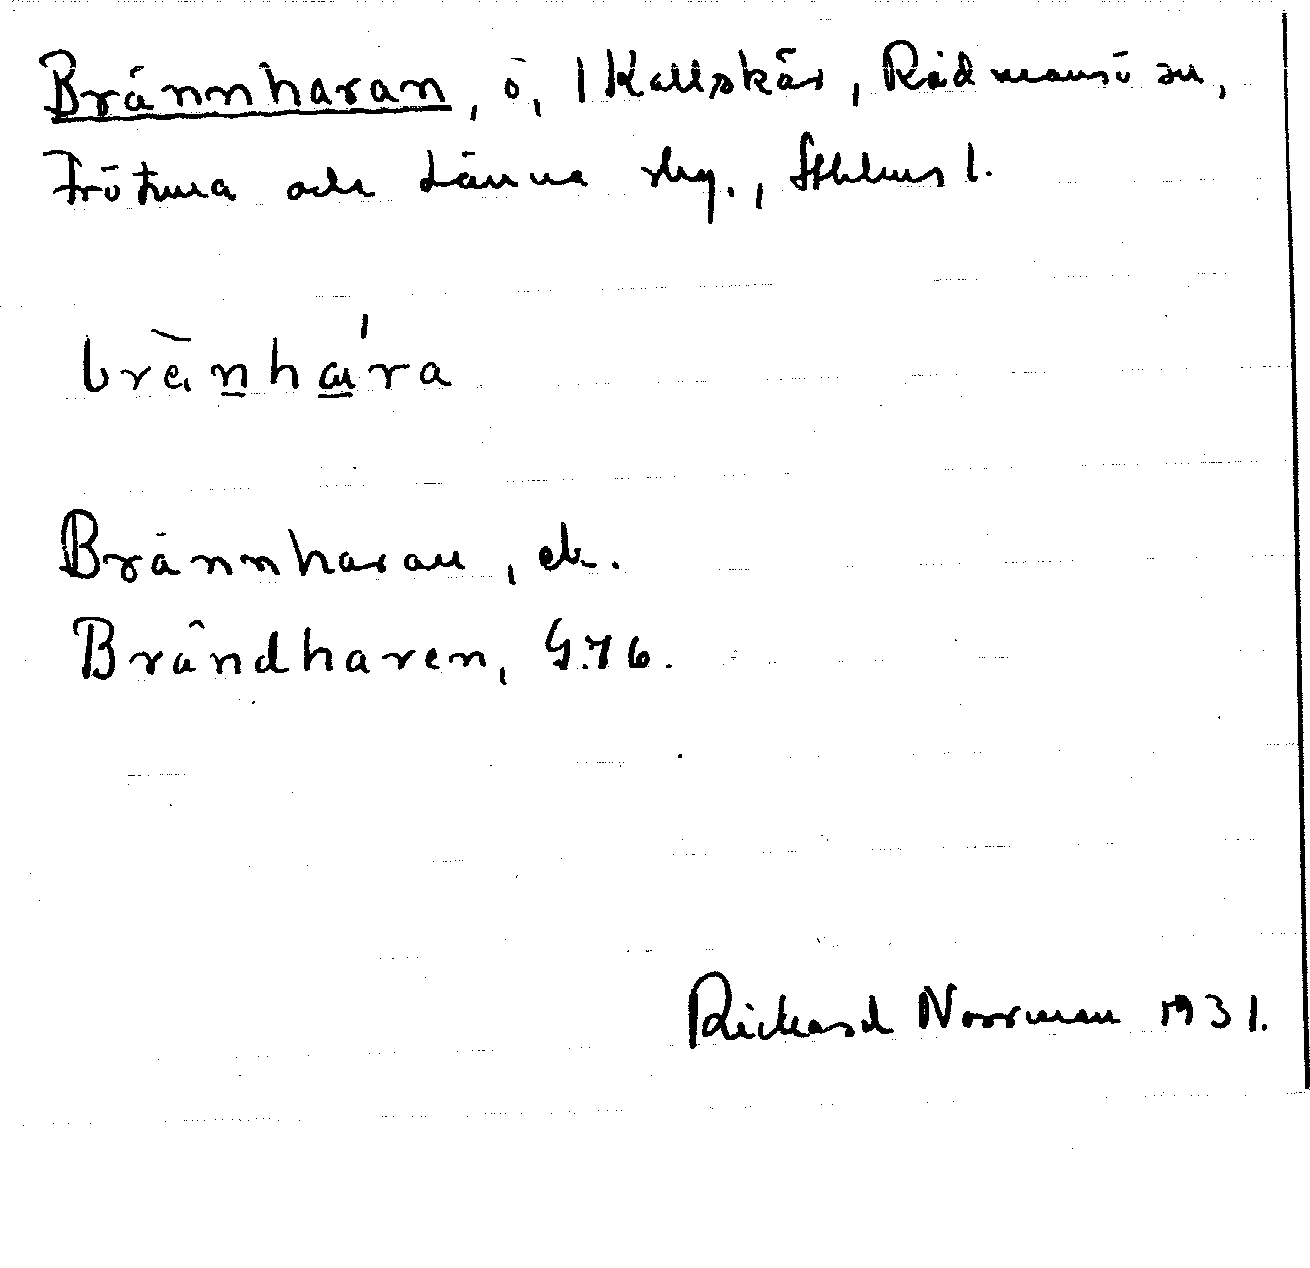 Brännharan, ö, 1 Kallskär, Rådmansö sn,
Frötuna och Länna skg., Sthlms l.
brä̀nhára
Brännharan, ek.
Brändharen, G.76.
Rickard Norrman 1931.